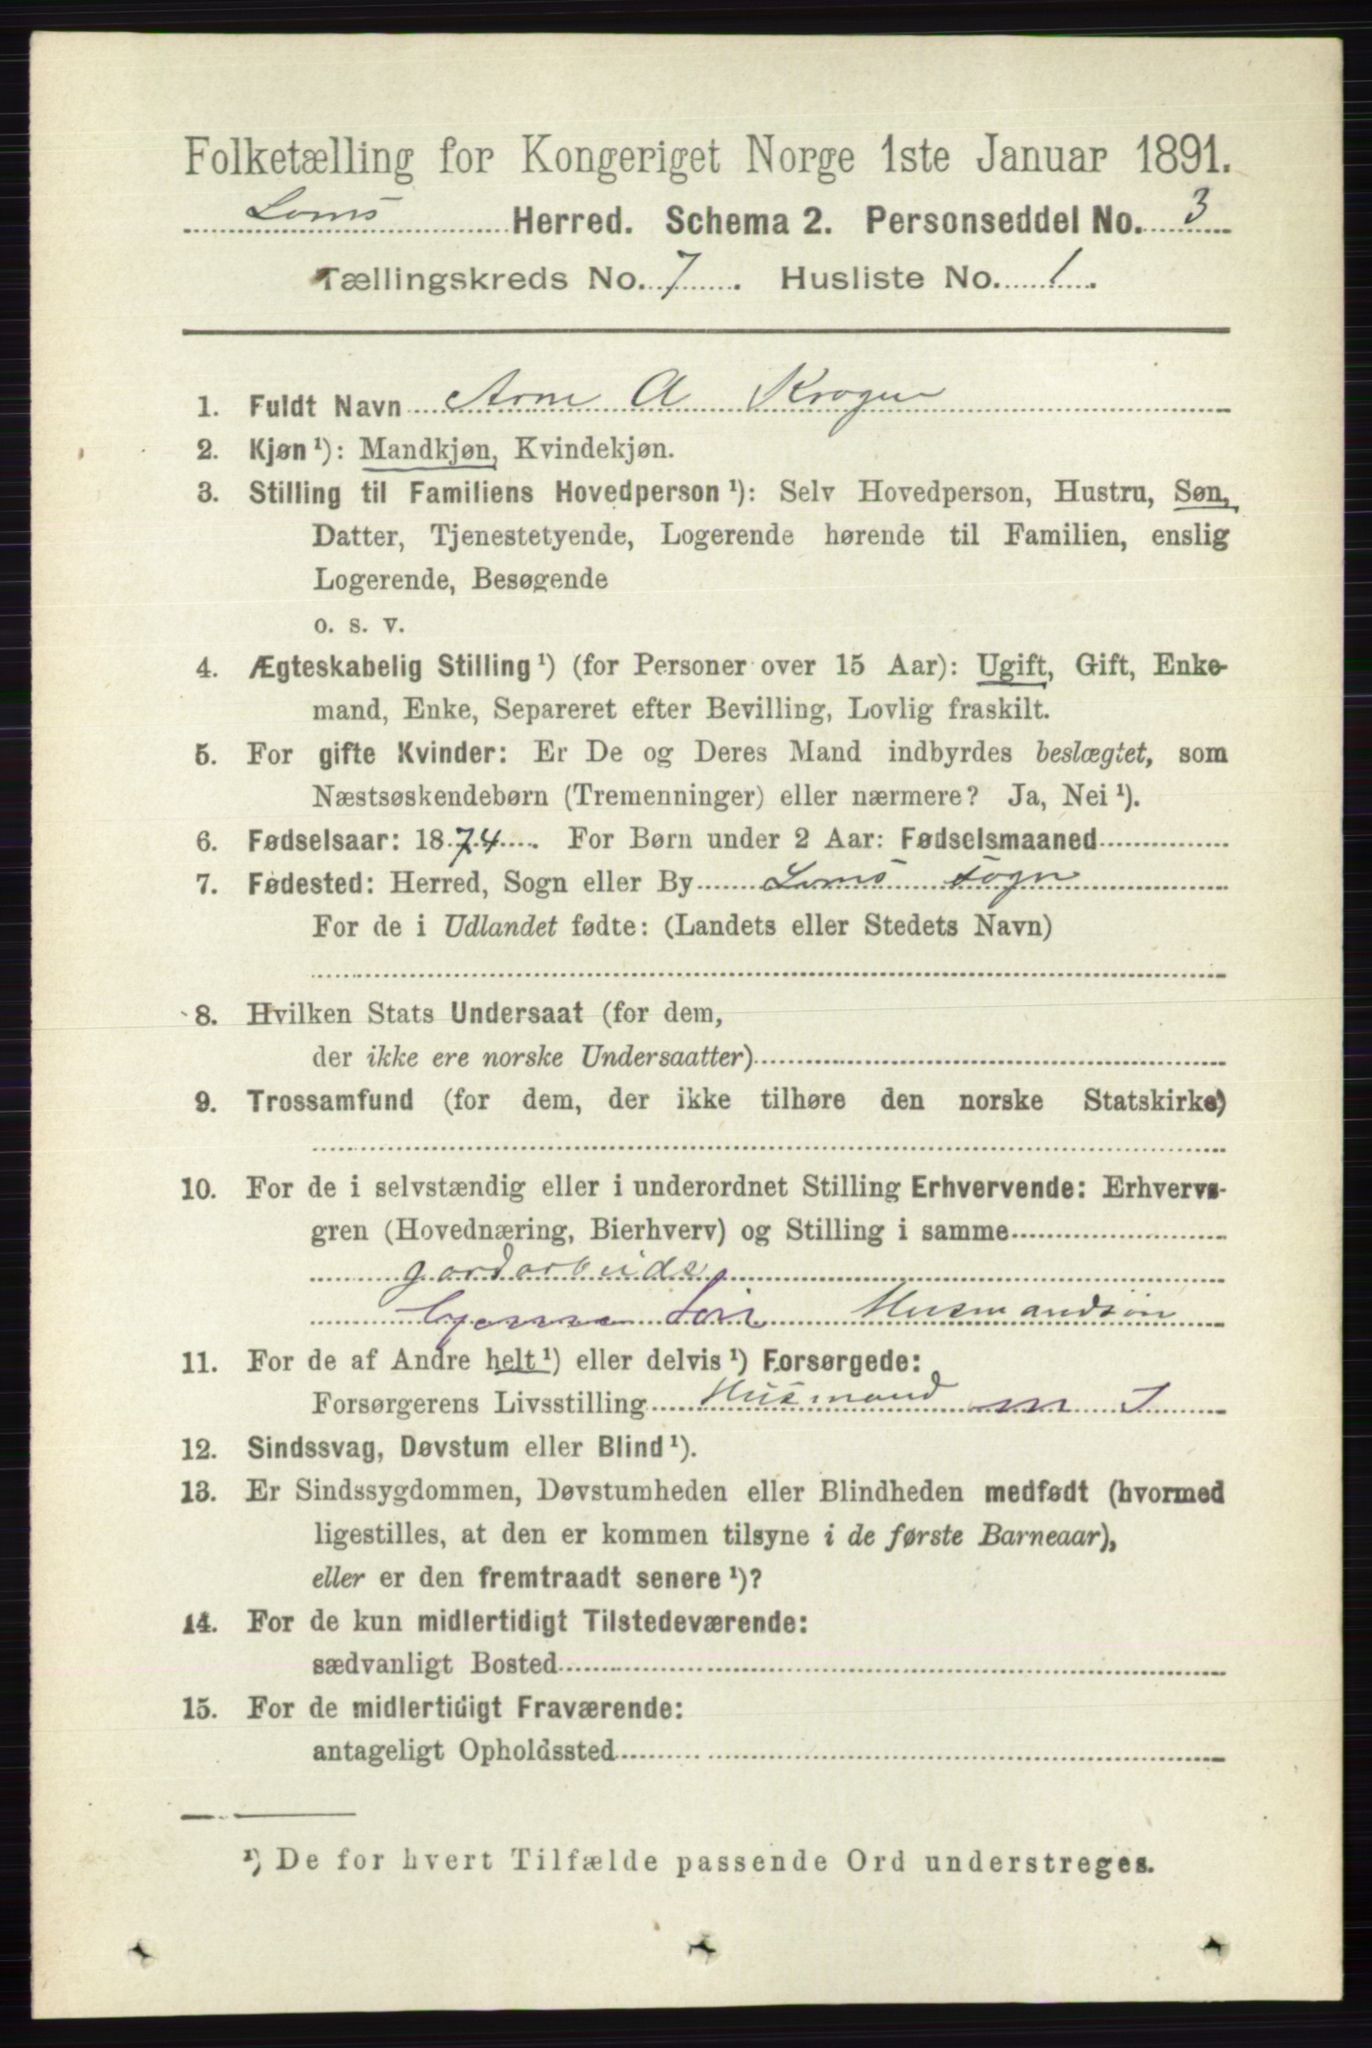 Folketælling for Kongeriget Norge 1ste Januar 1891.
Loms Herred. Schema 2. Personseddel No. 3
Tællingskreds No. 7. Husliste No. 1.
1. Fuldt Navn Arne A Krogen
2. Kjøn¹): Mandkjøn, Kvindekjøn.
3. Stilling til Familiens Hovedperson¹): Selv Hovedperson, Hustru, Søn,
Datter, Tjenestetyende, Logerende hørende til Familien, enslig
Logerende, Besøgende
o. s. v.
4. Ægteskabelig Stilling¹) (for Personer over 15 Aar): Ugift, Gift, Enke-
mand, Enke, Separeret efter Bevilling, Lovlig fraskilt.
5. For gifte Kvinder: Er De og Deres Mand indbyrdes beslægtet, som
Næstsøskendebørn (Tremenninger) eller nærmere? Ja, Nei¹).
6. Fødselsaar: 1874. For Børn under 2 Aar: Fødselsmaaned
7. Fødested: Herred, Sogn eller By Loms Sogn
For de i Udlandet fødte: (Landets eller Stedets Navn)
8. Hvilken Stats Undersaat (for dem,
der ikke ere norske Undersaatter)
9. Trossamfund (for dem, der ikke tilhøre den norske Statskirke)
10. For de i selvstændig eller i underordnet Stilling Erhvervende: Erhvervs-
gren (Hovednæring, Bierhverv) og Stilling i samme
gardarbeide
Husmandsøn
11. For de af Andre helt¹) eller delvis¹) Forsørgede:
Forsørgerens Livsstilling Husmand m J
12. Sindssvag, Døvstum eller Blind¹).
13. Er Sindssygdommen, Døvstumheden eller Blindheden medfødt (hvormed
ligestilles, at den er kommen tilsyne i de første Barneaar),
eller er den fremtraadt senere¹)?
14. For de kun midlertidigt Tilstedeværende:
sædvanligt Bosted
15. For de midlertidigt Fraværende:
antageligt Opholdssted
¹) De for hvert Tilfælde passende Ord understreges.